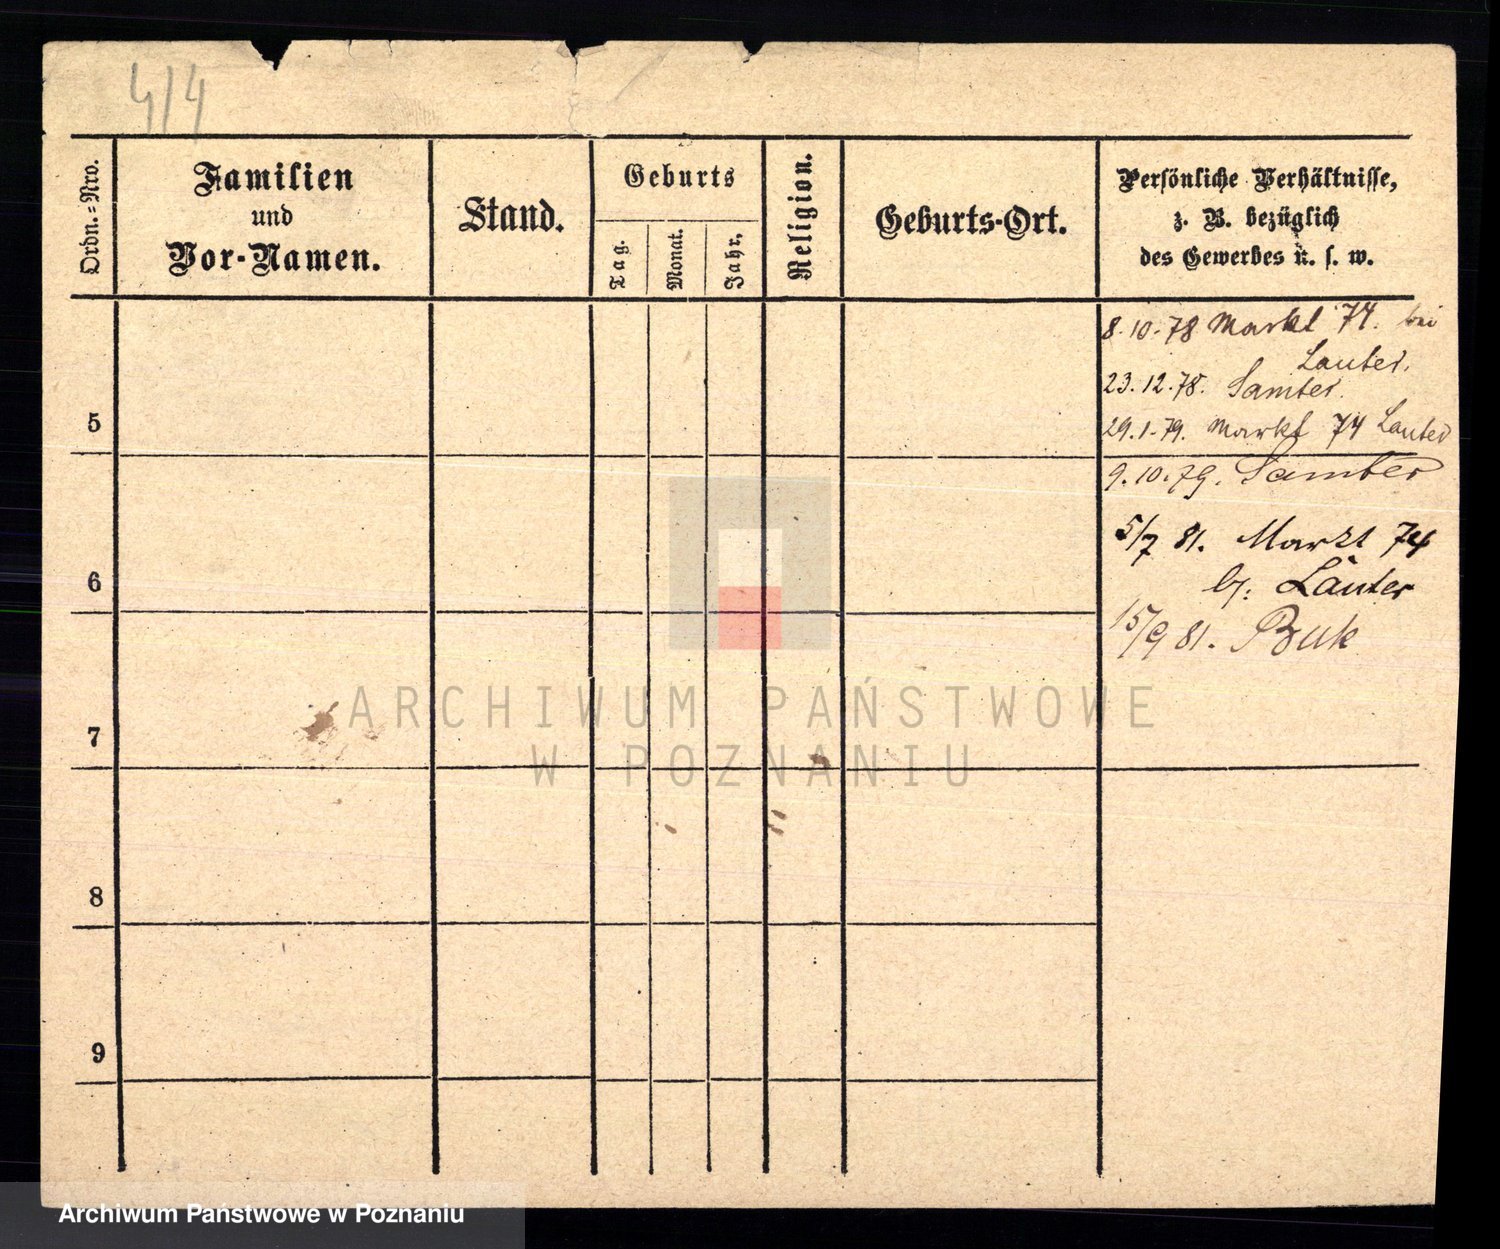 4/4
Ordn.=Nro.
Familien
und
Vor-Namen.
Stand.
Geburts
Tag.
Monat.
Jahr.
Religion.
Geburts-Ort.
Persönliche Verhältnisse,
z. B. bezüglich
des Gewerbes u. s. w.
8.10.78 Markt 74. bei
Lauter.
23.12.78. Samter.
29.1.79. Markt 74 Lauter
5
9.10.79. Samter
5/7 81. Markt 74
b/: Lauter
6
15/9 81. Buk
7
8
9
ARCHIWUM PAŃSTWOWE
W POZNANIU
Archiwum Państwowe w Poznaniu